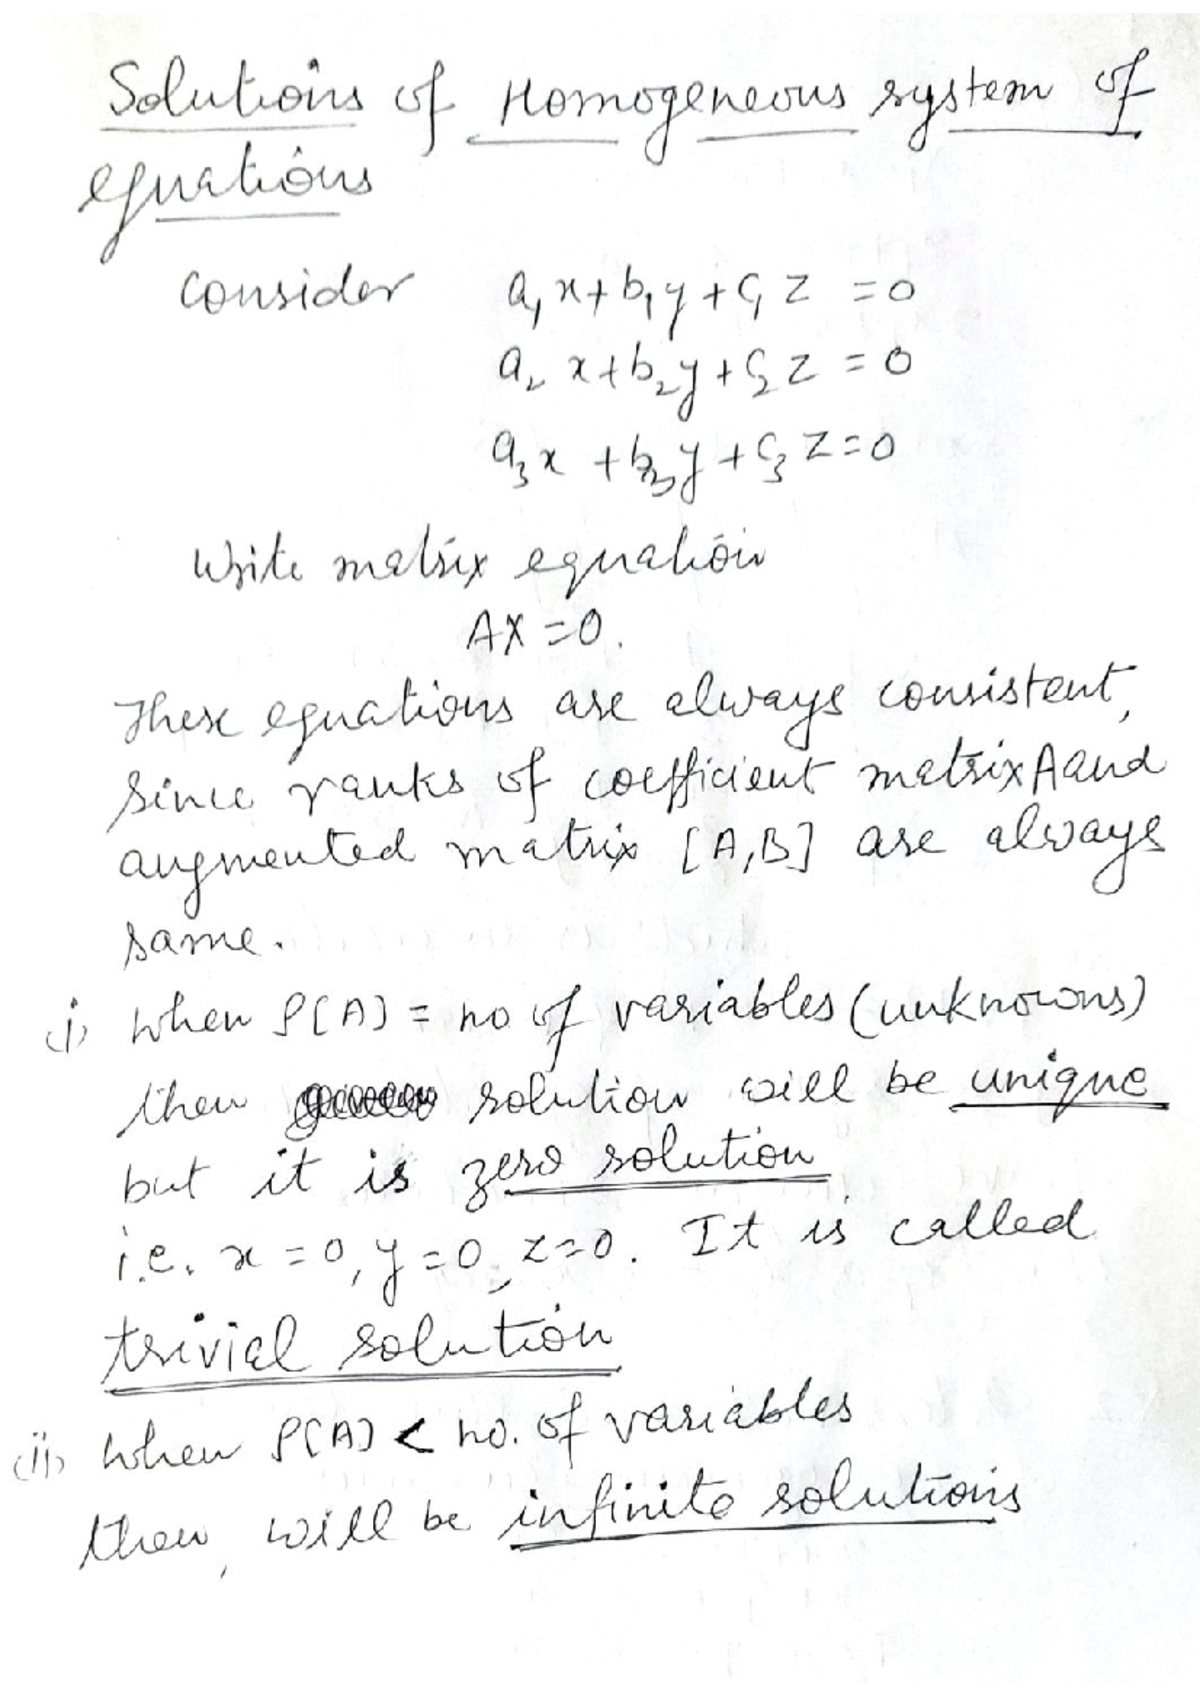 Solutions of Homogeneous system of
equations
Consider a₁x + b₁y + c₁z = 0
a₂x + b₂y + c₂z = 0
a₃x + b₃y + c₃z = 0
Write matrix equation
AX = 0.
These equations are always consistent,
Since ranks of coefficient matrix A and
augmented matrix [A,B] are always
same.
(i) When ρ[A] = no. of variables (unknowns)
then solution will be unique
but it is zero solution
i.e. x = 0, y = 0, z = 0. It is called
trivial solution
(ii) When ρ[A] < no. of variables
then, will be infinite solutions